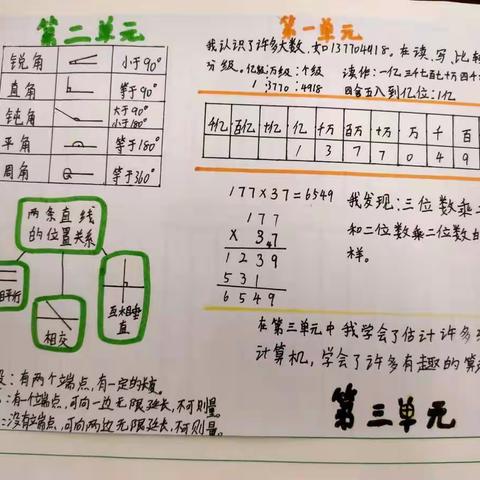 第二单元
锐角 小于90°
直角 等于90°
钝角 大于90° 小于180°
平角 等于180°
周角 等于360°
两条直线
的位置关系
相平行
相交
互相垂
直
：有两个端点，有一定的长度。
：有一个端点，可向一边无限延长，不可测量。
：没有端点，可向两边无限延长，不可测量。
第一单元
我认识了许多大数，如137704918。在读、写、比较
分级。亿级 万级 个级 读作：一亿三千七百七十万四千
1 3770 4918 四舍五入到亿位：1亿
千亿 百亿 十亿 亿 千万 百万 十万 万 千 百
1 3 7 7 0 4 9
177×37=6549
177
× 37
4
1239
531
6549
我发现：三位数乘二
和二位数乘二位数的
样。
在第三单元中我学会了估计许多
计算机，学会了许多有趣的算
第三单元